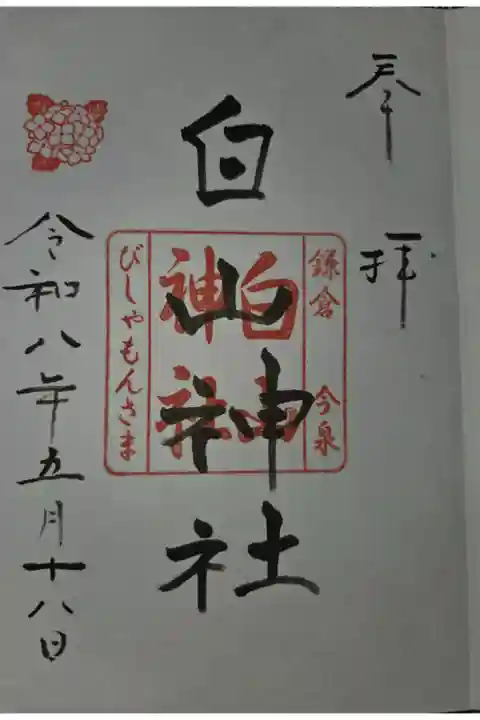 奉拝
白山神社
鎌倉 今泉
白山
神社
びしゃもんさま
令和八年五月十八日